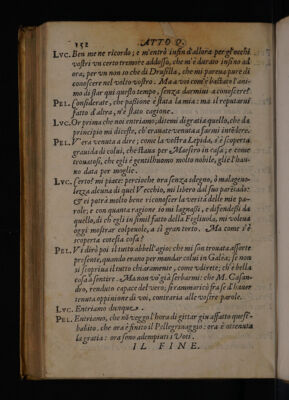 152 ATTO Q.
LVC. Ben me ne ricordo; e m'entrò infin d'allora per gl'occhi
vostri un certo tremore addosso, che m'è durato infino ad
ora, per un non so che di Drusilla, che mi pareva pure di
conoscere nel volto vostro. Ma a voi com'è bastato l'ani-
mo di star qui questo tempo, senza darmivi a conoscere?
PEL. Considerate, che passione è stata la mia: ma il reputarmi
fatto d'altra, n'è stato cagione.
LVC. Or prima che noi entriamo; ditemi di gratia quello, che da
principio mi diceste, ch'eravate venuta a farmi intēdere.
PEL. V'era venuta a dire; come la vostra Lepida, s'è scoperta
gravida di colui, che stava per Maestro in casa; e come
trovatosi, che egli è gentilhuomo molto nobile, gliè l'hau-
no data per moglie.
LVC. Certo? mi piace: percioche ora senza sdegno, ò malageuo-
lezza alcuna di quel Vecchio, mi libero dal suo parētado:
& ei potrà molto bene riconoscer la verità delle mie pa-
role; e con quanta ragione io mi lagnassi, e difendessi da
quello, di ch'egli in simil fatto della Figliuola, mi voleva
oggi mostrar colpeuole, a sì gran torto. Ma come s'è
scoperta cotesta cosa?
PEL. Vi dirò poi il tutto a bell'agio; che mi son trovata a forte
presente, quando erano per mandar colui in Galèa; se non
si scopriva il tutto chiaramente, come vdirete; ch'è bella
cosa a sentire. Ma non vo già serbarmi: che M. Cassan-
dro, renduto capace del vero; si rammaricò fra se d'hauer
tenuta oppinione di voi, contraria alle vostre parole.
LVC. Entriamo dunque.
PEL. Entriamo, che nō veggo l'hora di gittar giu affatto quest'-
habito. che ora è finito il Pellegrinaggio: ora è ottenuta
la gratia: ora sono adempiuti i Voti.
IL FINE.